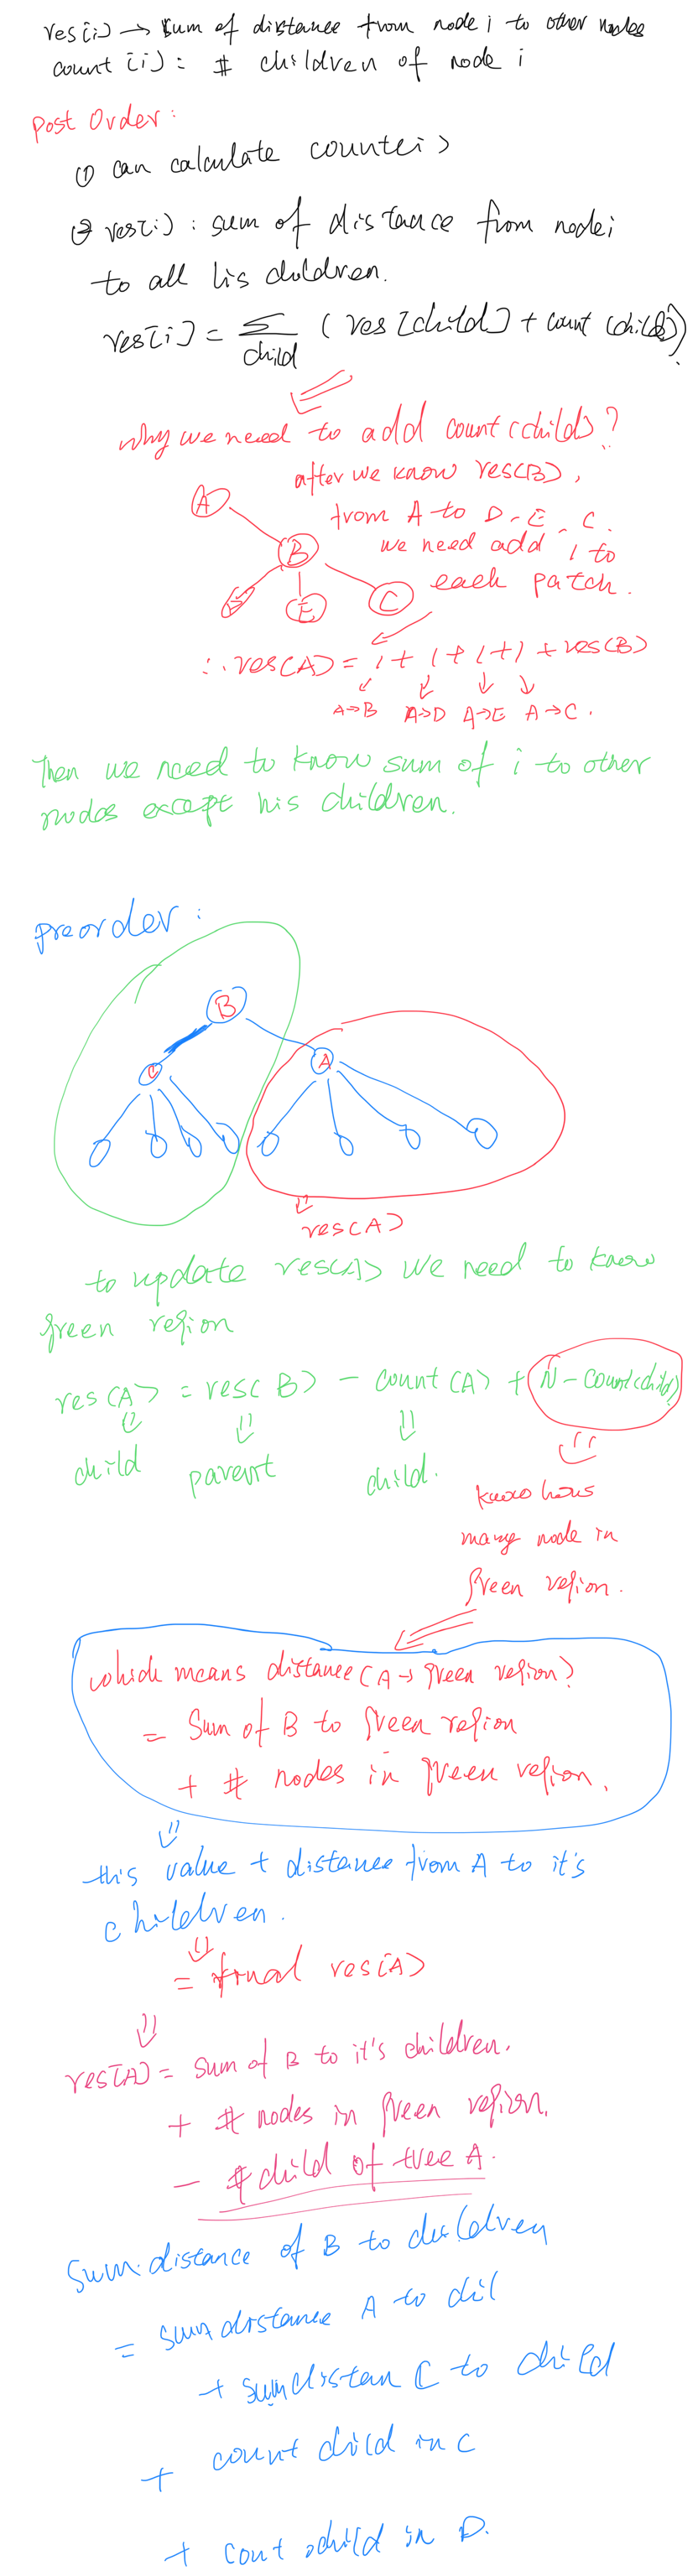 res[i] → sum of distance from node i to other nodes
count [i] : # children of node i
Post Order :
① can calculate count[i]
② res[i] : sum of distance from node i
to all his children.
res[i] = Σ ( res [child] + count [child])
child
why we need to add count [child] ?
after we know res(B),
from A to D, E, C.
we need add 1 to
each patch.
A
B
E
C
∴ res(A) = 1 + 1 + 1 + 1 + res(B)
A→B A→D A→E A→C.
Then we need to know sum of i to other
nodes except his children.
preorder :
B
C
A
res(A)
to update res(A) we need to know
green region
res(A) = res(B) - count(A) + N - count(child)
child parent child.
know how
many node in
green region.
which means distance (A → green region)
= Sum of B to green region
+ # nodes in green region.
this value + distance from A to it's
children.
= final res[A]
res[A] = sum of B to it's children.
+ # nodes in green region.
- # child of tree A.
Sum distance of B to children
= sum distance A to chil
+ sum distan C to child
+ count child in C
+ cont child in D.